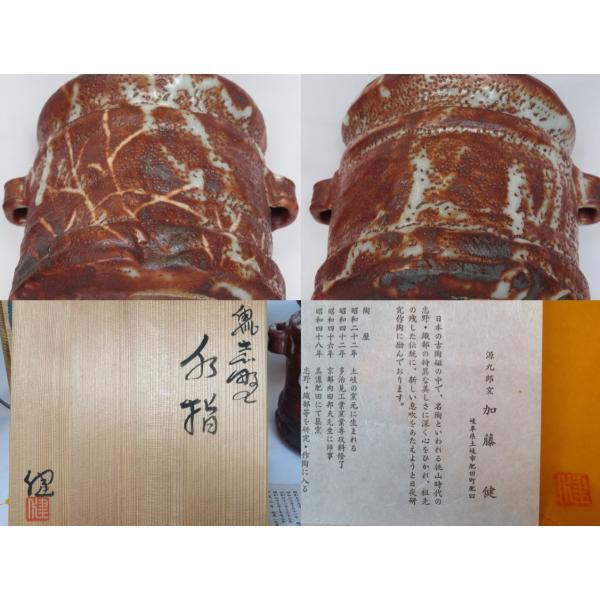 鬼志野
水指
健
健
源九郎窯 加藤 健
岐阜県土岐市肥田町肥田
日本の古陶磁の中で、名陶といわれる桃山時代の
志野・織部の特異な美しさに深く心をひかれ、祖先
の残した伝統に、新しい息吹をあたえようと日夜研
究作陶に励んでおります。
陶 歴
昭和二十二年 土岐の窯元に生まれる
昭和四十二年 多治見工業窯業専攻科修了
昭和四十六年 京都内田邦夫先生に師事
昭和四十八年 美濃肥田にて築窯
志野・織部等を研究・作陶に入る